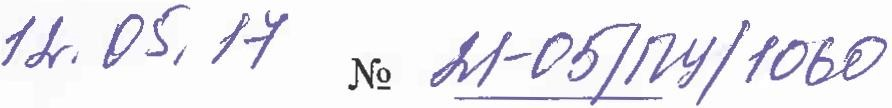 12.05.17 № 21-05/ПУ/1060